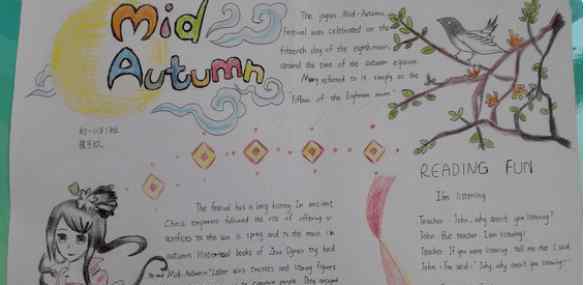 Mid
Autumn
The Mid-Autumn
Festival was celebrated on the
fifteenth day of the eighth moon,
around the time of the autumn equinox.
Many referred to it simply as the
"Fifteen of the Eighth moon".
READING FUN
I'm listening
Teacher: John, why aren't you listening?
John: But teacher I am listening!
Teacher: If you were listening, tell me what I said.
John: You said: "John, why aren't you listening?"
The festival has a long history. In ancient
China emperors followed the rite of offering
sacrifices to the sun in spring and to the moon in
autumn. Historical books of Zhou Dynasty had
"Mid-Autumn". Later and literary figures
people. They